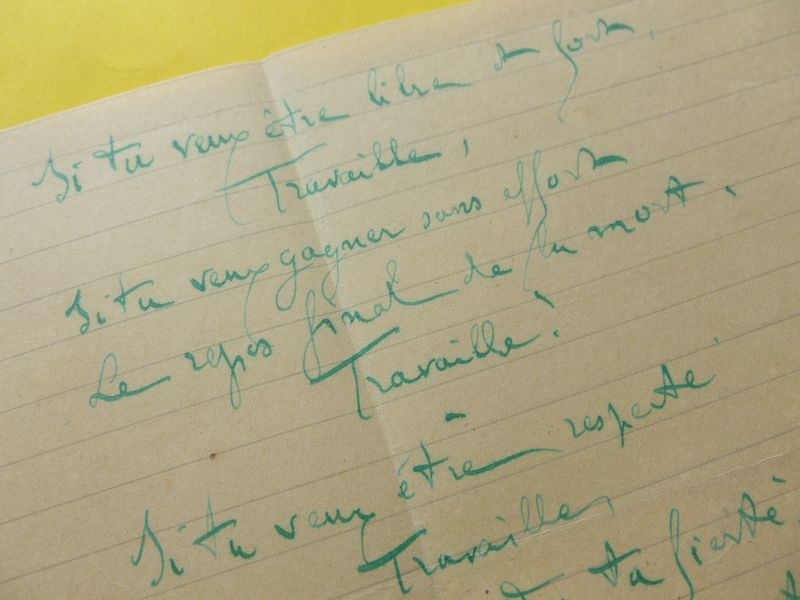 Si tu veux être libre et fort,
Travaille,
Si tu veux gagner sans effort
Le repos final de la mort,
Travaille!
Si tu veux être respecté
Travaille,
ta fierté,